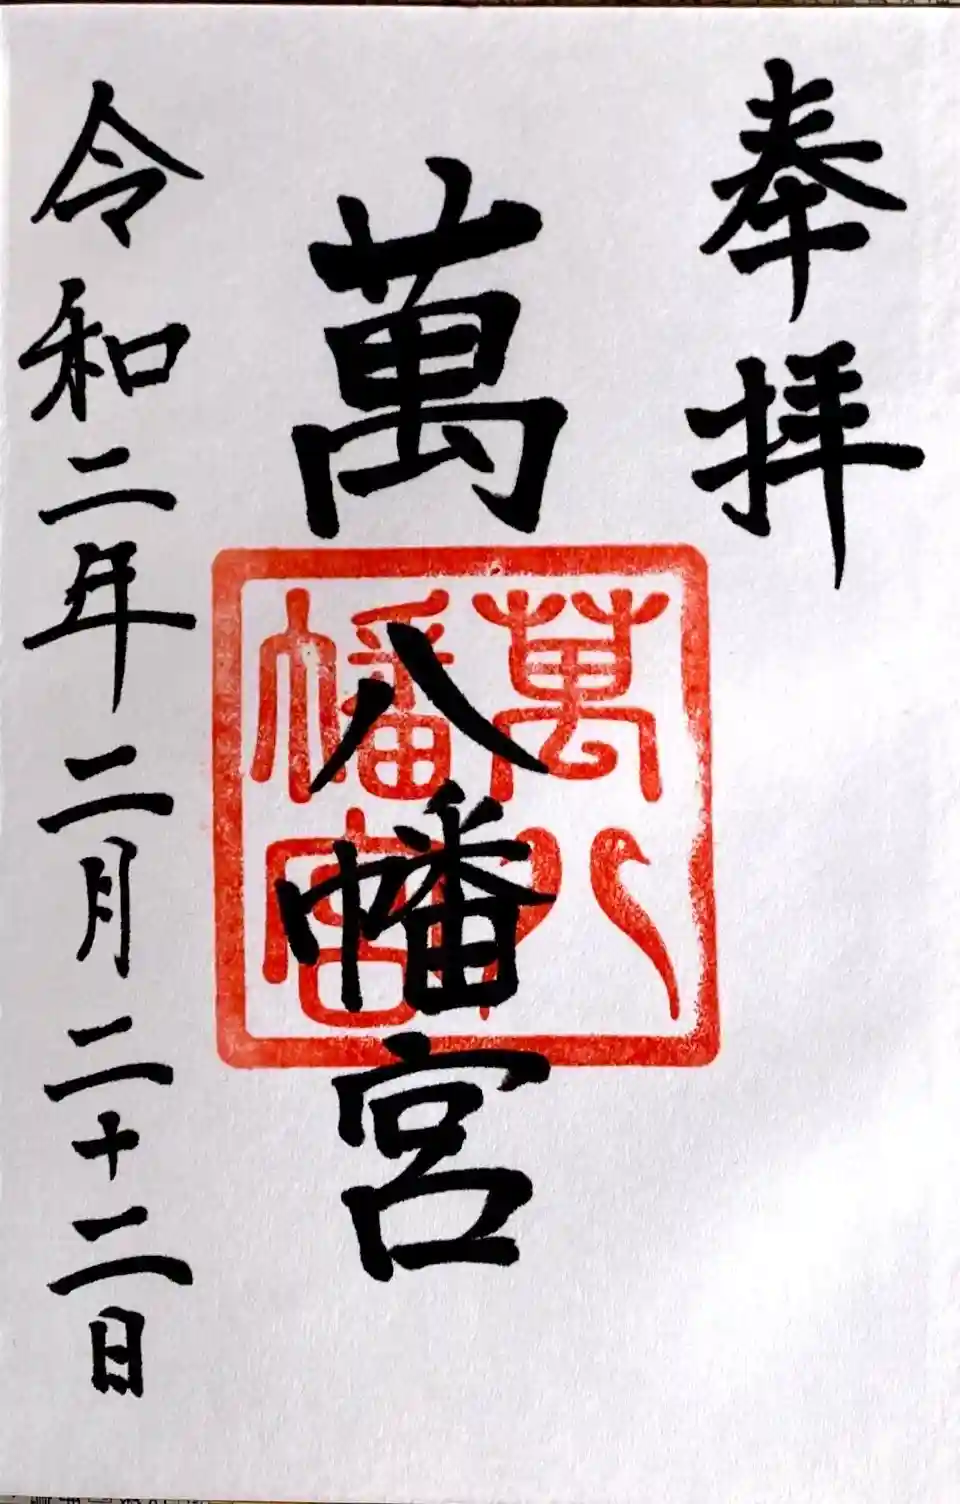 奉拝
萬八幡宮
萬八
幡宮
令和二年二月二十二日